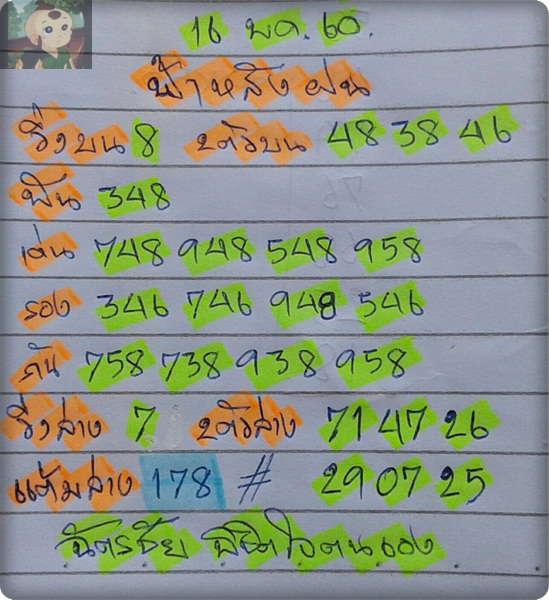 16 พ.ค. 60.
ฟ้าหลังฝน
วิ่งบน 8 2ตัวบน 48 38 46
ฟัน 348
เด่น 748 948 548 958
รอง 346 746 948 546
กัน 758 738 938 958
วิ่งล่าง 7 2ตัวล่าง 71 47 26
แต้มล่าง 178 # 29 07 25
ฉัตรชัย ลิขิตใจตนเอง